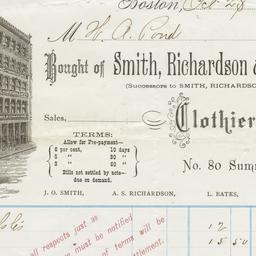 Boston, Oct 28
M H. A. Pond
Bought of Smith, Richardson &
(Successors to SMITH, RICHARDSO
Sales,
Clothier
TERMS:
Allow for Pre-payment—
6 per cent, 10 days
5 " 30 "
3 " 60 "
Bills not settled by note—
due on demand.
No. 80 Sum
J. O. SMITH, A. S. RICHARDSON, L. BATES,
all respects just as
must be notified
of terms will be
tlement.
12
15 50